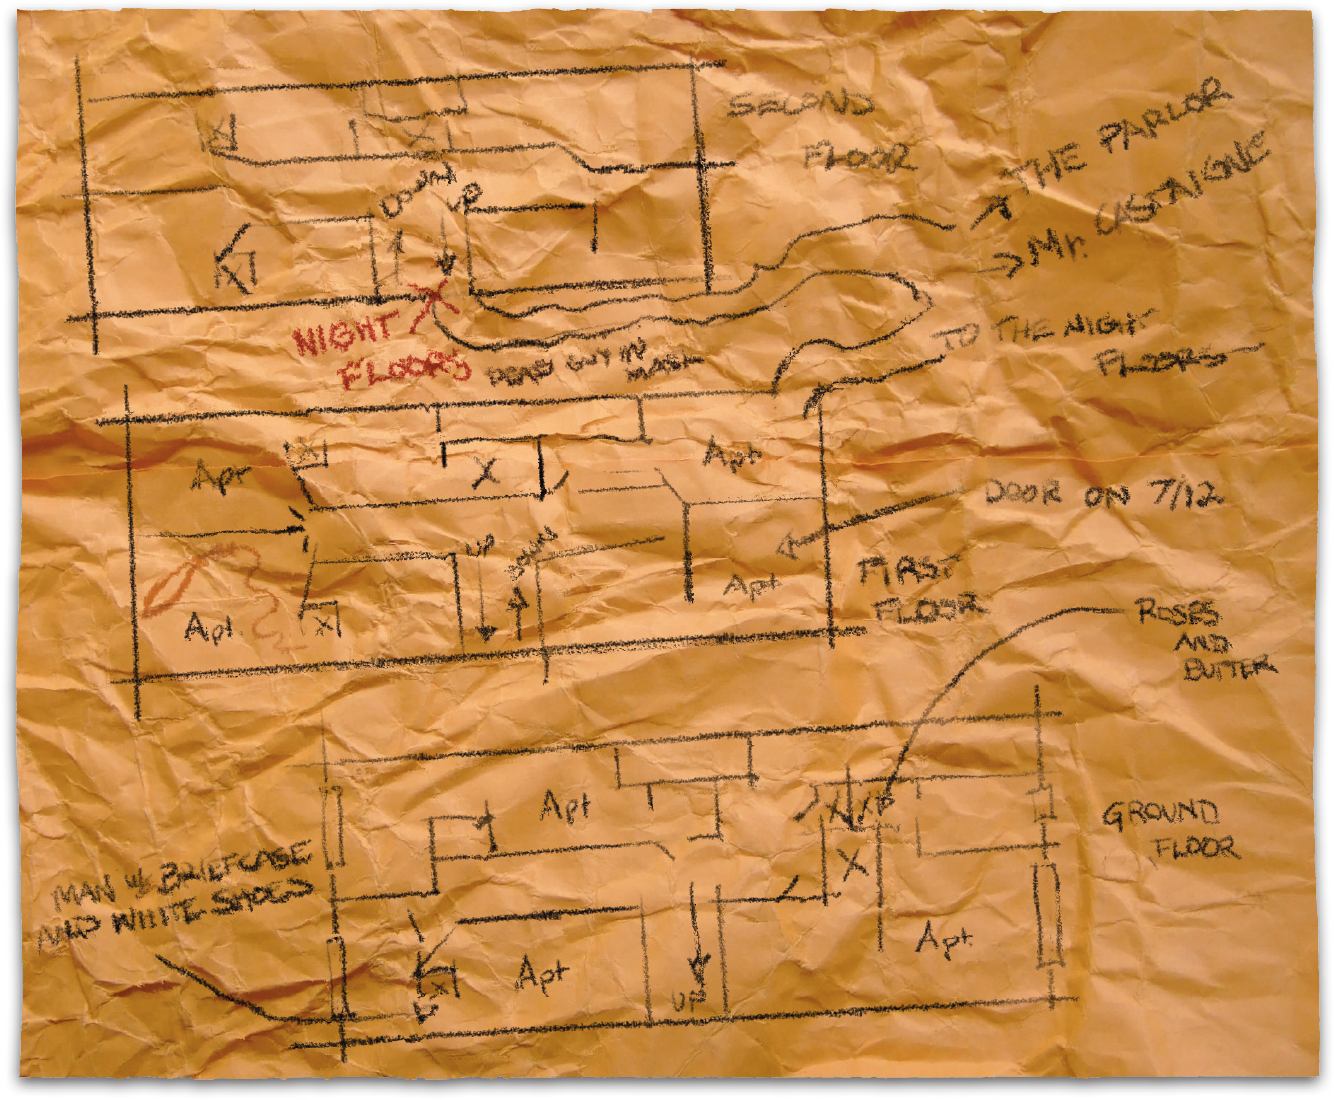 SECOND
FLOOR
THE PARLOR
Mr. CASTAIGNE
X
X
DOWN
UP
X
NIGHT
FLOORS
DEAD GUY IN
MASK
TO THE NIGHT
FLOORS
Apt
X
X
Apt
DOOR ON 7/12
UP
DOWN
Apt
X
Apt
FIRST
FLOOR
ROSES
AND
BUTTER
Apt
X
UP
X
GROUND
FLOOR
MAN W/ BRIEFCASE
AND WHITE SHOES
Apt
X
Apt
UP